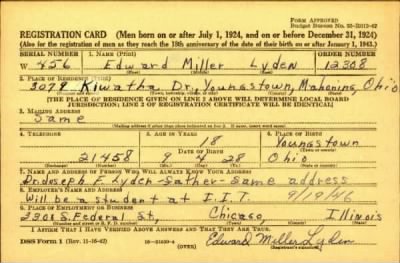 FORM APPROVED
Budget Bureau No. 33-R012-42
REGISTRATION CARD (Men born on or after July 1, 1924, and on or before December 31, 1924)
(Also for the registration of men as they reach the 18th anniversary of the date of their birth on or after January 1, 1943.)
SERIAL NUMBER 1. NAME (Print) ORDER NUMBER
W 456 Edward Miller Lyden 12308
(First) (Middle) (Last)
2. PLACE OF RESIDENCE (Print)
3078 Kiwatha Dr, Youngstown, Mahoning, Ohio
[THE PLACE OF RESIDENCE GIVEN ON LINE 2 ABOVE WILL DETERMINE LOCAL BOARD
JURISDICTION; LINE 2 OF REGISTRATION CERTIFICATE WILL BE IDENTICAL]
3. MAILING ADDRESS
Same
[Mailing address if other than place indicated on line 2. If same, insert word same]
4. TELEPHONE 5. AGE IN YEARS 6. PLACE OF BIRTH
18 Youngstown
DATE OF BIRTH
21458 9 4 28 Ohio
7. NAME AND ADDRESS OF PERSON WHO WILL ALWAYS KNOW YOUR ADDRESS
Dr. Joseph F. Lyden-father-same address
8. EMPLOYER'S NAME AND ADDRESS
Will be a student at I.I.T. 9/19/46
9. PLACE OF EMPLOYMENT OR BUSINESS
S. Federal St, Chicago, Illinois
I AFFIRM THAT I HAVE VERIFIED ABOVE ANSWERS AND THAT THEY ARE TRUE.
DSS Form 1 (Rev. 11-16-42) (OVER) Edward Miller Lyden
(Registrant's signature)